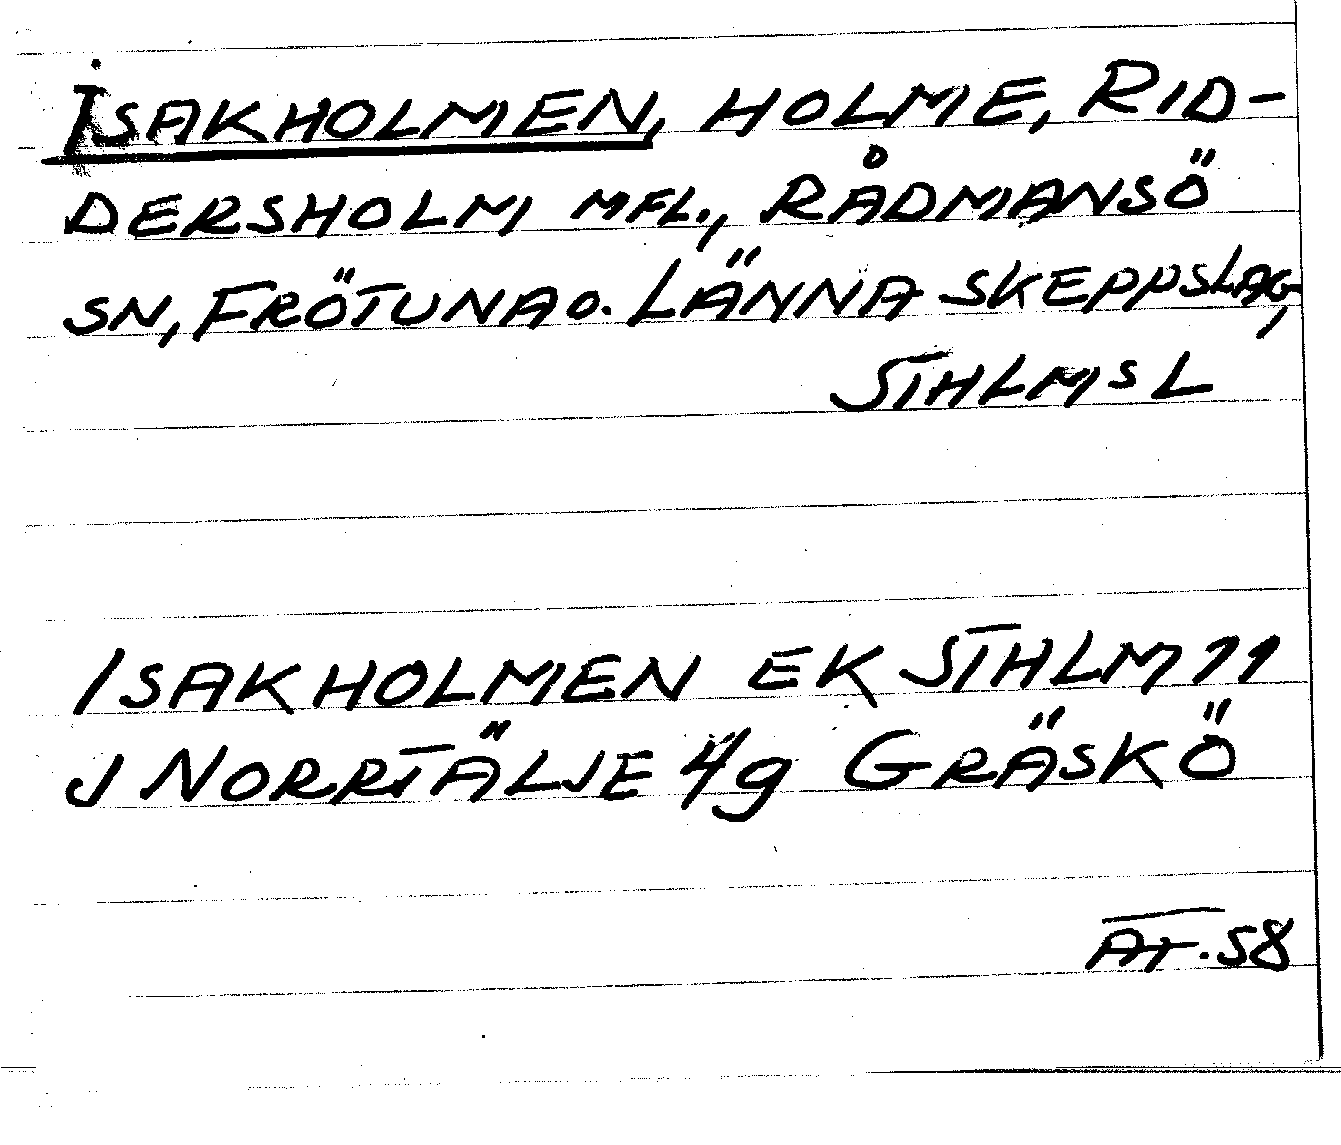 ISAKHOLMEN, HOLME, RID-
DERSHOLM MFL., RÅDMANSÖ
SN, FRÖTUNA O. LÄNNA SKEPPSLAG,
STHLMS L
ISAKHOLMEN EK STHLM 11
J NORRTÄLJE 4g GRÄSKÖ
AT. 58